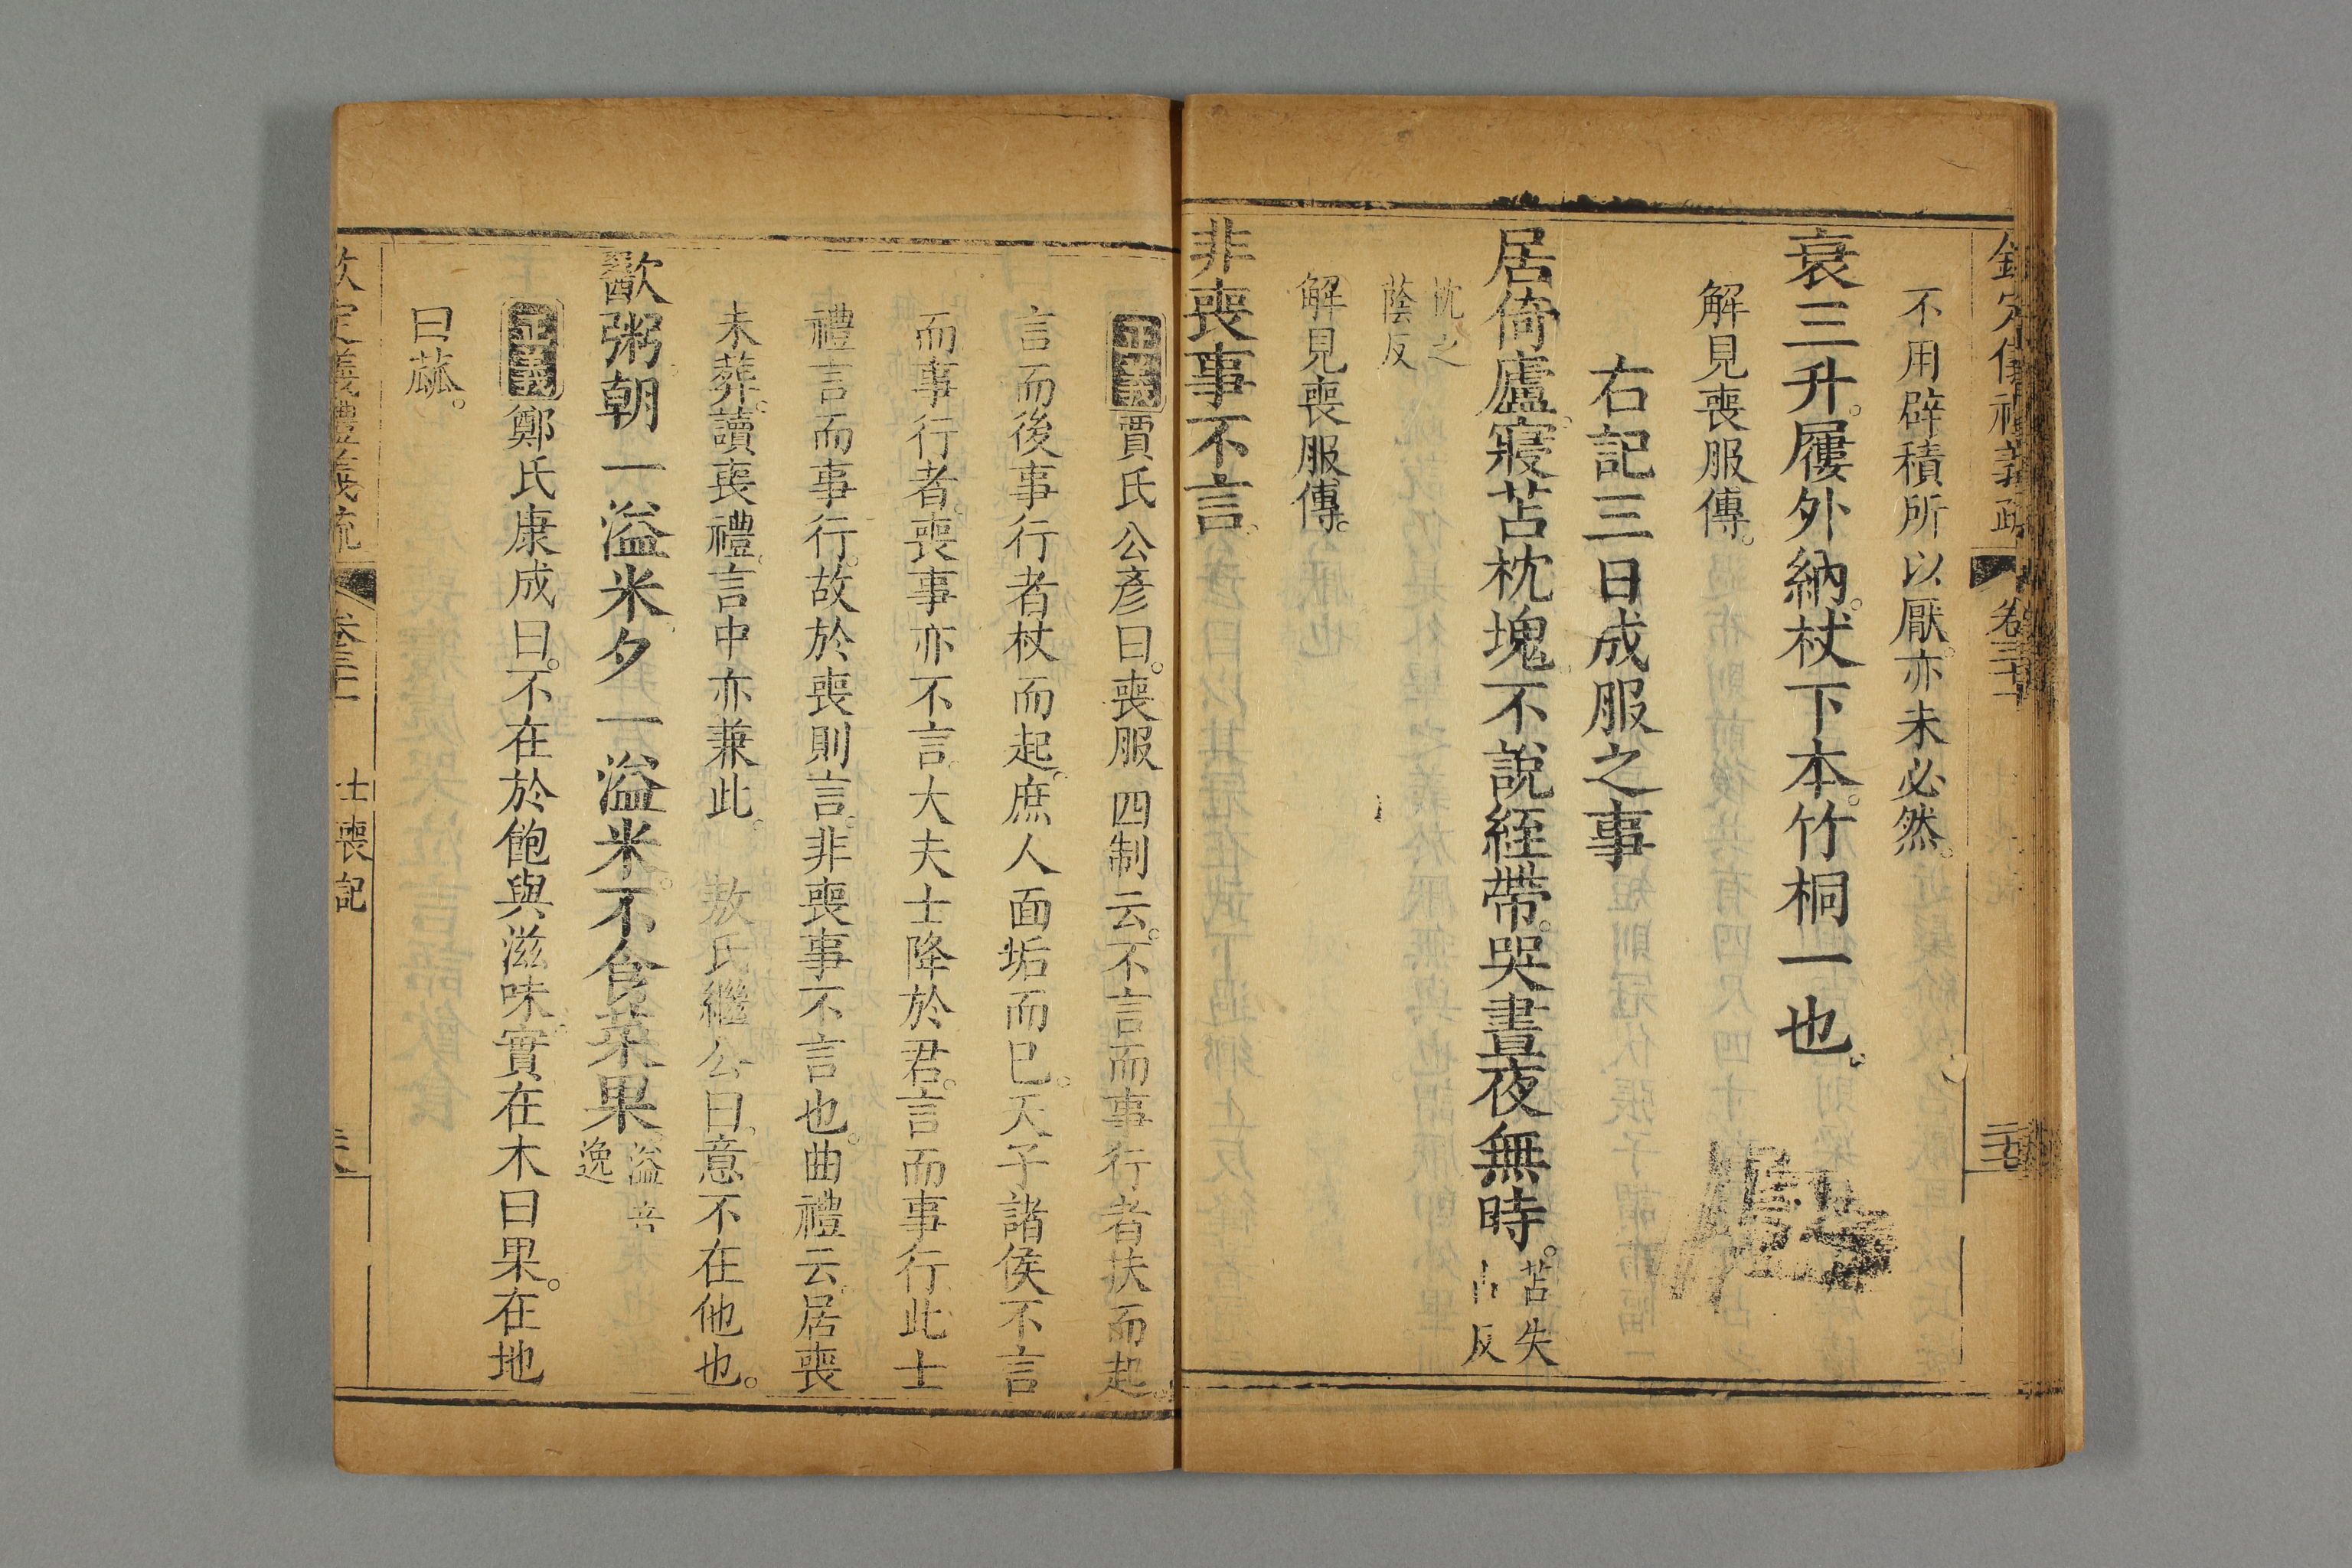 欽定儀禮義疏 卷三十
不用辟積所以厭亦未必然。
衰三升。屨外納。杖下本。竹桐一也。
解見喪服傳。
右記三日成服之事
居倚廬。寢苫枕塊。不說絰帶。哭晝夜無時。苫失
占反
枕之
蔭反
解見喪服傳。
非喪事不言。
正義賈氏公彥曰。喪服四制云。不言而事行者扶而起。
言而後事行者杖而起。庶人面垢而已。天子諸侯不言
而事行者。喪事亦不言。大夫士降於君。言而事行。此士
禮言而事行。故於喪則言。非喪事不言也。曲禮云。居喪
未葬。讀喪禮。言中亦兼此。 敖氏繼公曰。意不在他也。
歠粥朝一溢米夕一溢米。不食菜果。溢音
逸
正義鄭氏康成曰。不在於飽與滋味。實在木曰果。在地
曰蓏。
欽定儀禮義疏 卷三十 士喪記